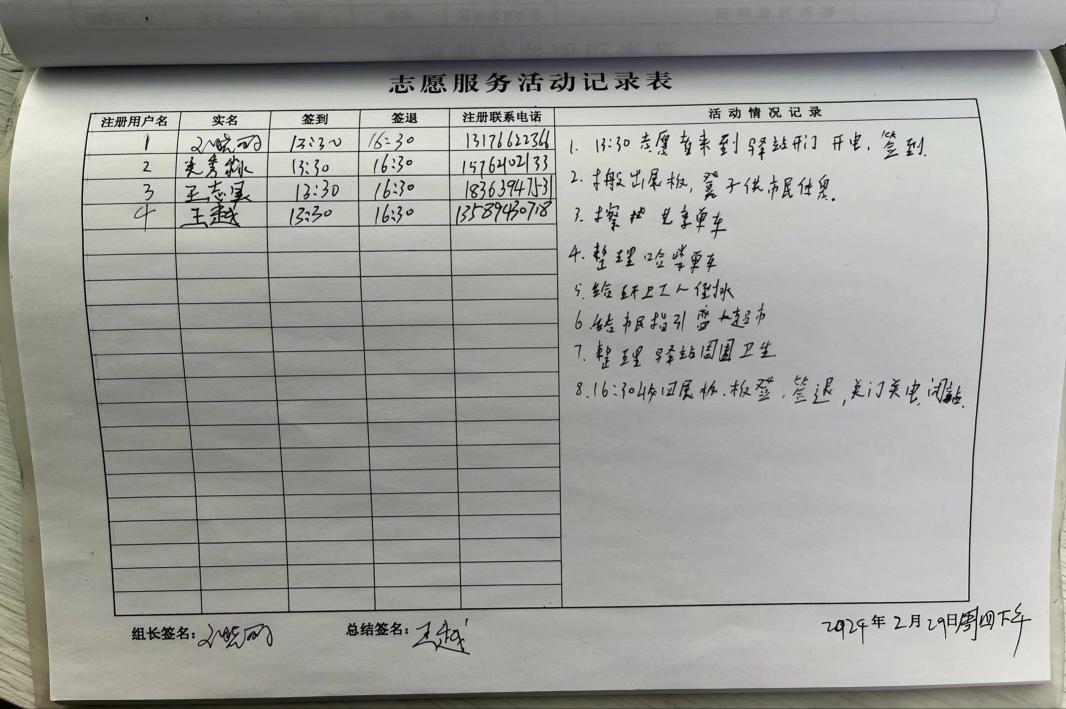 志愿服务活动记录表
注册用户名 实名 签到 签退 注册联系电话 活动情况记录
1 刘晓丽 13:30 16:30 13176622366
2 13:30 16:30 15762402133
3 王志昊 13:30 16:30 18363947531
4 王越 13:30 16:30 13589430718
1. 13:30 志愿者来到驿站开门开电,签到.
2. 搬出展板,凳子供市民休息.
3. 擦 共享单车
4. 整理哈啰单车
5. 给环卫工人倒水
6. 给市民指引 超市
7. 整理驿站周围卫生
8. 16:30收回展板.板凳.签退,关门关电,闭站.
组长签名: 刘晓丽 总结签名: 王越
2024年2月29日周四下午